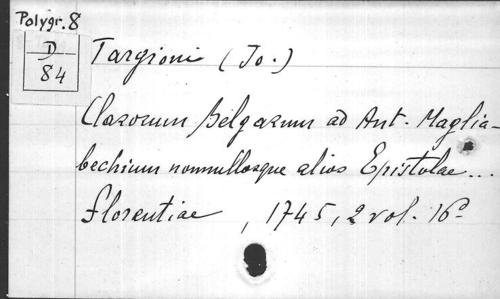 Polygr. 8
D
84
Targioni (Jo.)
Clarorum Belgarum ad Ant. Maglia-
bechium nonnullosque alios Epistolae...
Florentiae, 1745, 2 vol. 16º